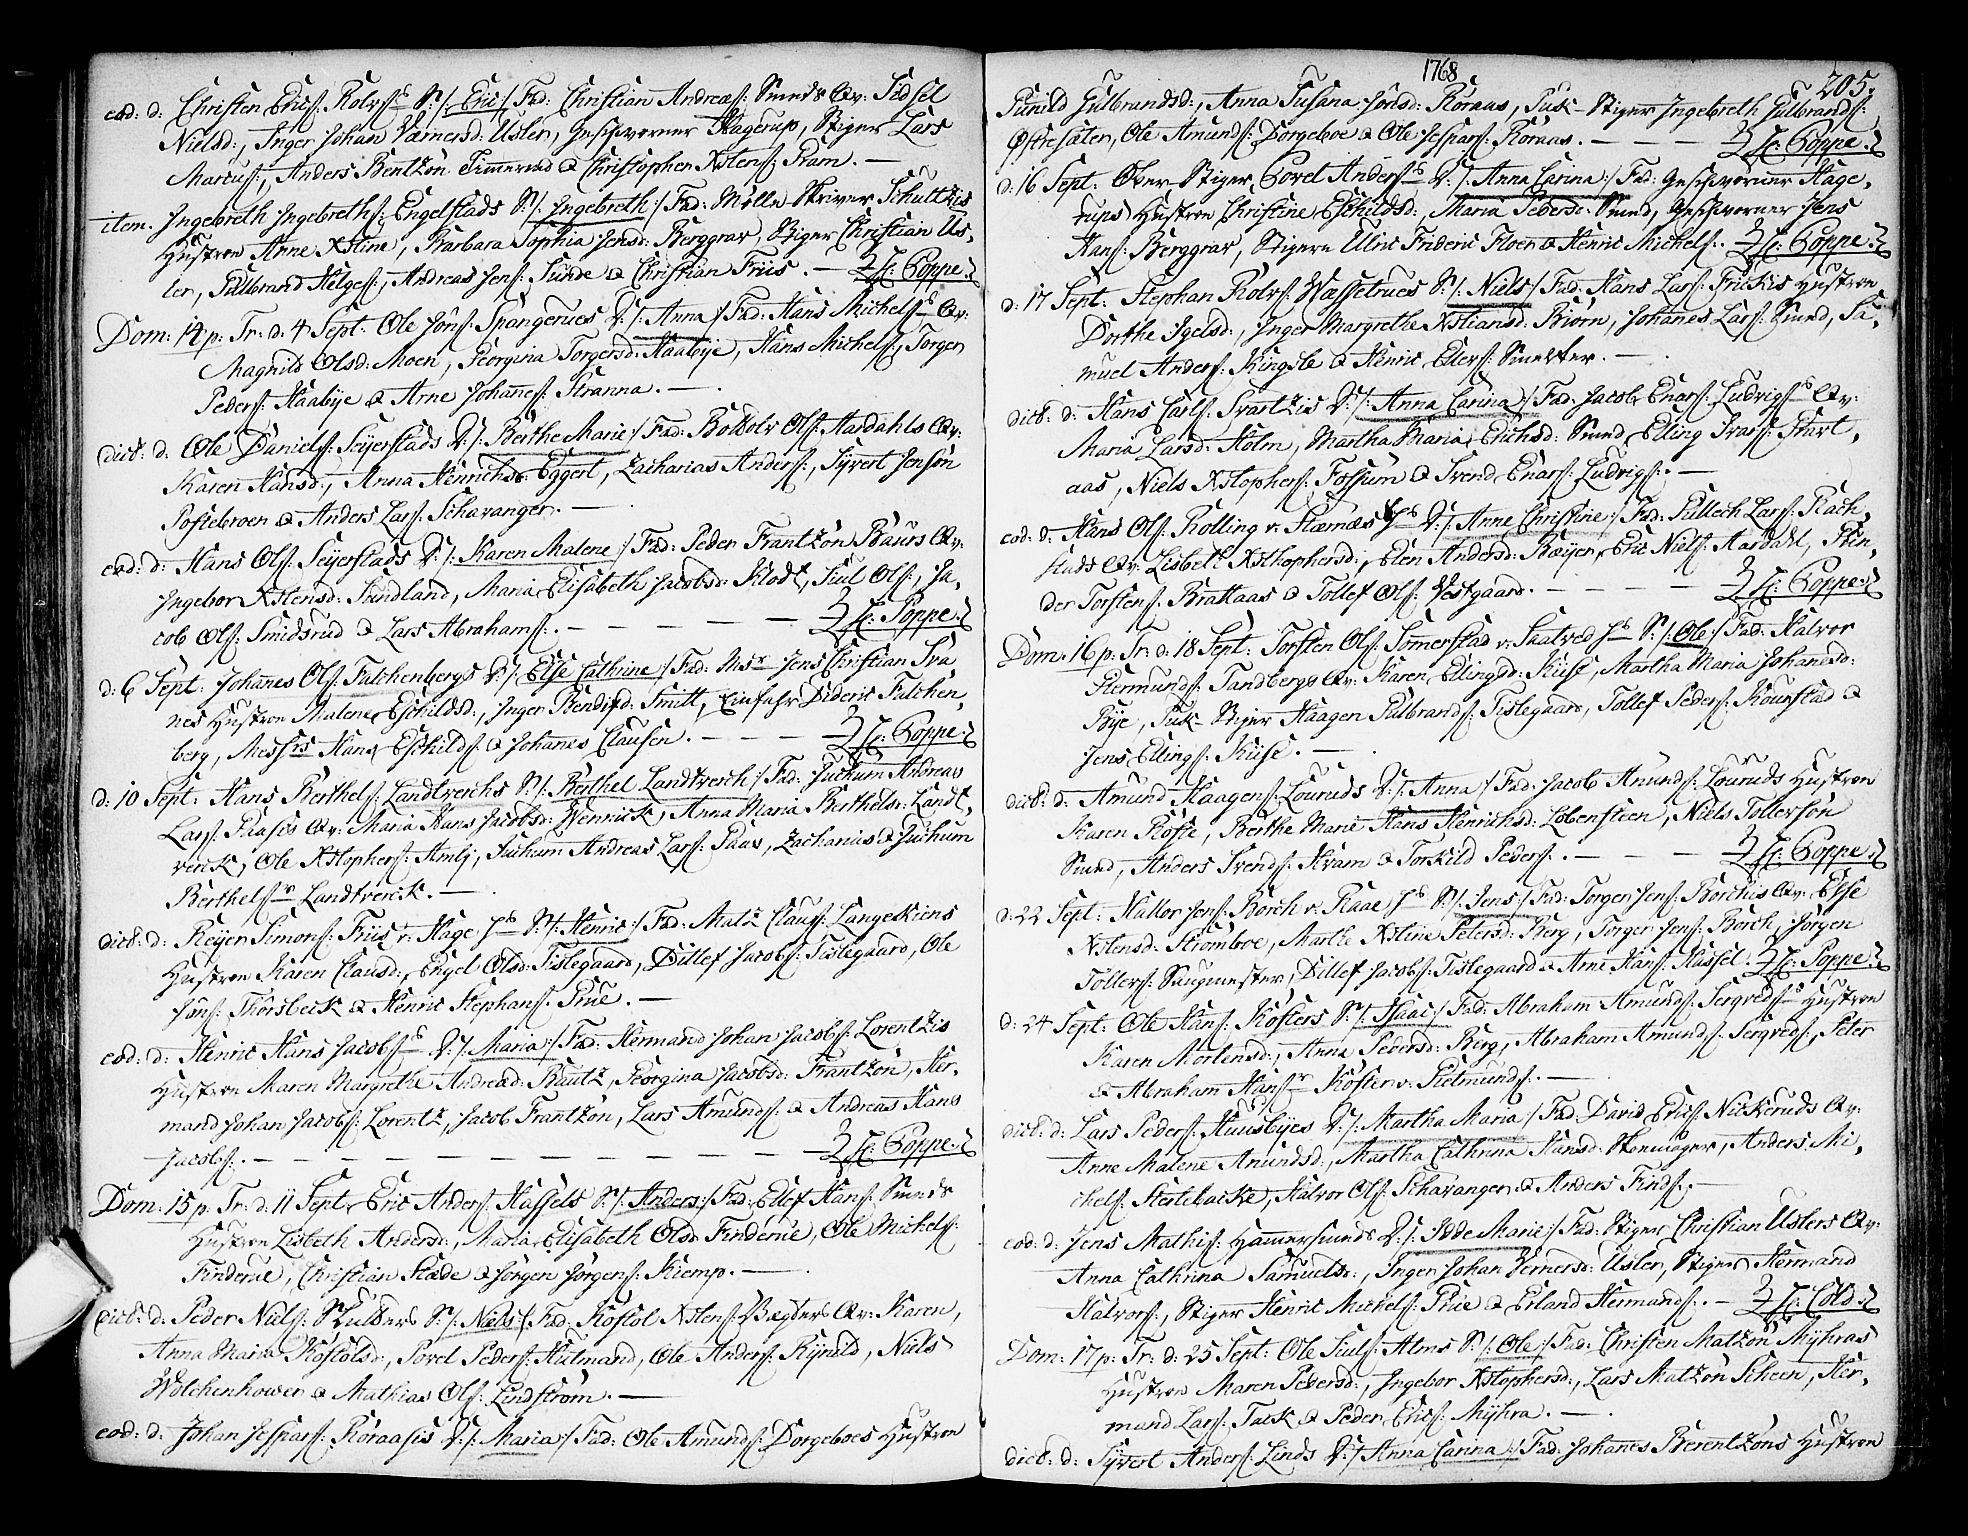 eod: d: Christen Erics: Rolvs S: /: Eric :/ Fad: Christian Andreas: Smeds Qv: Sidsel
Nielsd:, Inger Johan Værnersd: Usler, Geschworner Hagerup, Stiger Lars
Marcus:, Anders Bentzôn Timmermd & Christopher Xstens: Pram. —
item. Ingebreth Ingebreths: Engelstads S: /: Ingebreth :/ Fad: Mølle Skriver Schultzis
Hustroe Anne Xstine, Barbara Sophia Jensd: Berggrav, Stiger Christian Us,
ler, Gulbrand Helges:, Andreas Jens: Sunde & Christian Friis. — Sc: Poppe.
Dom: 14 p: Tr: d: 4 Sept: Ole Jôns: Spangerues D: /: Anna :/ Fad: Hans Michels: Qv:
Magnild Olsd: Moen, Georgina Torgersd: Haabye, Hans Michels:, Torger
Peders: Haabye & Arne Johannes: Stranna. —
dict: d: Ole Daniels: Seyerstads D: /: Berthe Marie :/ Fad: Botolv Ols: Aardahls Qv:
Karen Hansd:, Anna Henrichsd: Eggert, Zacharias Anders:, Syvert Jensôn
Postebroen & Anders Lars: Schavanger. —
eod: d: Hans Ols: Seyerstads D: /: Karen Malene :/ Fad: Peder Frantzôn Baurs Qv:
Ingebor Xstensd: Sundland, Maria Elisabeth Jacobsd: Klodt, Siul Ols:, Ja,
cob Ols: Smidsrud & Lars Abrahams: — — — — Sc: Poppe.
d: 6 Sept: Johanes Ols: Falchenbergs D: /: Else Cathrine :/ Fad: Msr Jens Christian Sva
nes Hustroe Malene Eschildsd:, Inger Bendixd: Smitt, Einfahr Dideric Falchen,
berg, Messrs Hans Eschilds: & Johanes Clausen. — — — Sc: Poppe.
d: 10 Sept: Hans Berthels: Landtverchs S: /: Berthel Landtverch :/ Fad: Juchum Andreas
Lars: Paasis Qv: Maria Hans Jacobsd: Wenrick, Anna Maria Berthelsd: Landt,
verck, Ole Xstophers: Amlj, Juchum Andreas Lars: Paus, Zacharias & Juchum
Berthels: Landtverck. —
dict: d: Reyer Simons: Friis v: Hage S: /: Henric :/ Fad: Matz Claus: Langeskiens
Hustroe Karen Clausd:, Engel Olsd: Tislegaard, Ditlef Jacobs: Tislegaard, Ole
Jôns: Thorsbeck & Henric Stephans: Prue. —
eod: d: Henric Hans Jacobs: D: /: Maria :/ Fad: Hermand Johan Jacobs: Lorentzis
Hustroe Maren Margrethe Andread: Rautz, Georgina Jacobsd: Frantzôn, Her,
mand Johan Jacobs: Lorentz, Jacob Frantzôn, Lars Amunds: & Andreas Hans
Jacobs: — — — — — — — — Sc: Poppe.
Dom: 15 p: Tr: d: 11 Sept: Eric Anders: Hassels S: /: Anders :/ Fad: Ellef Hans: Smeds
Hustroe Lisbeth Andersd:, Maria Elisabeth Olsd: Finderue, Ole Michels:
Finderue, Christian Stæde & Jørgen Jørgens: Kiemp. —
dict: d: Peder Niels: S: /: Niels :/ Fad: Kostol Xstens: Qv: Karen,
Anna Maria Kostolsd:, Povel Peders: Hutmand, Ole Anders: Rynild, Niels
Wolchenhower & Mathias Ols: Lindstrøm. —
eod: d: Johan Jespars: Roraasis D: /: Maria :/ Fad: Ole Amunds: Dorgeboes Hustroe
1768
205.
Gunild Gulbrandsd:, Anna Susana Jonsd: Roraas, Puk-Stiger Ingebreth Gulbrands:
Østresæter, Ole Amunds: Dorgeboe & Ole Jespars: Roraas. — — — Sc: Poppe.
d: 16 Sept: Ober-Stiger Povel Anders: D: /: Anna Carina :/ Fad: Geschworner Hage,
rups Hustroe Christine Eschildsd:, Maria Pedersd: Smed, Geschworner Jens
Hans: Berggrav, Stigere Ulric Frideric Floer & Henric Michels: Sc: Poppe.
d: 17 Sept: Stephan Rolvs: Wæsselrues S: /: Niels :/ Fad: Hans Lars: Frickis Hustroe
Dorthe Igelsd:, Inger Margrethe Xstiansd: Biørn, Johanes Lars: Smed, Sa,
muel Anders: Kingsle & Henric Eders: Smelter. —
dict: d: Hans Carls: Svartzis D: /: Anna Carina :/ Fad: Jacob Enars: Ludvigs: Qv:
Maria Larsd: Holm, Martha Maria Erichsd: Smed, Elling Ivars: Start,
aas, Niels Xstophers: Fossum & Svend Enars: Ludvigs: —
eod: d: Hans Ols: Kolling v: Stærnæs D: /: Anne Christine :/ Fad: Gullech Lars: Rach,
stads Qv: Lisbeth Xstophersd:, Elen Andersd: Ræyer, Eric Niels: Aardahl, Ten,
der Torstens: Brattaas & Tollef Ols: Vestgaard. — — — Sc: Poppe.
Dom: 16 p: Tr: d: 18 Sept: Torsten Ols: Somerstad v: Saatved S: /: Ole :/ Fad: Halvor
Stermunds: Tandbergs Qv: Karen Ellingsd: Kiise, Martha Maria Johanesd:
Bye, Puk-Stiger Haagen Gulbrands: Tislegaard, Tollef Peders: Kounstad &
Jens Ellings: Kiise. —
dict: d: Amund Haagens: Louruds D: /: Anna :/ Fad: Jacob Amunds: Louruds Hustroe
Karen Koste, Berthe Marie Hans Henrichsd: Lobensteen, Niels Tollersôn
Smed, Anders Svends: Kram & Torkild Peders: — — — Sc: Poppe.
d: 22 Sept: Hallor Jens: Borch v: Raae S: /: Jens :/ Fad: Torger Jens: Borchis Qv: Else
Xstensd: Stromboe, Marthe Xstine Petersd: Berg, Torger Jens: Borch, Jørgen
Tollers: Saugmester, Ditlef Jacobs: Tislegaard & Arne Hans: Hassel. Sc: Poppe.
d: 24 Sept: Ole Hans: Kosters S: /: Isaac :/ Fad: Abraham Amunds: Sergveds: Hustroe
Karen Mortensd:, Anna Pedersd: Berg, Abraham Amunds: Sergveds:, Peter
& Abraham Hans: Koster v: Gietmunds: —
dict: d: Lars Peders: Huusbyes D: /: Martha Maria :/ Fad: David Erics: Nickeruds Qv:
Anne Malene Amundsd:, Martha Cathrina Hansd: Skomager, Anders Mi,
chels: Stenlebacke, Halvor Ols: Schavanger & Anders Finds: —
eod: d: Jens Mathis: Hamersmeds D: /: Idde Marie :/ Fad: Stiger Christian Uslers Qv:
Anna Cathrina Samuelsd:, Inger Johan Vernersd: Usler, Stiger Hermand
Halvors:, Stiger Henric Michels: Prue & Erland Hermands: — Sc: Cold.
Dom: 17 p: Tr: d: 25 Sept: Ole Siuls: Alms S: /: Ole :/ Fad: Christen Matzôn Myhras
Hustroe Maren Pedersd:, Ingebor Xstophersd:, Lars Matzôn Scheen, Her,
mand Lars: Tack & Peder Erics: Myhra. —
dict: d: Syvert Anders: Linds D: /: Anna Carina :/ Fad: Johanes Berentzôns Hustroe